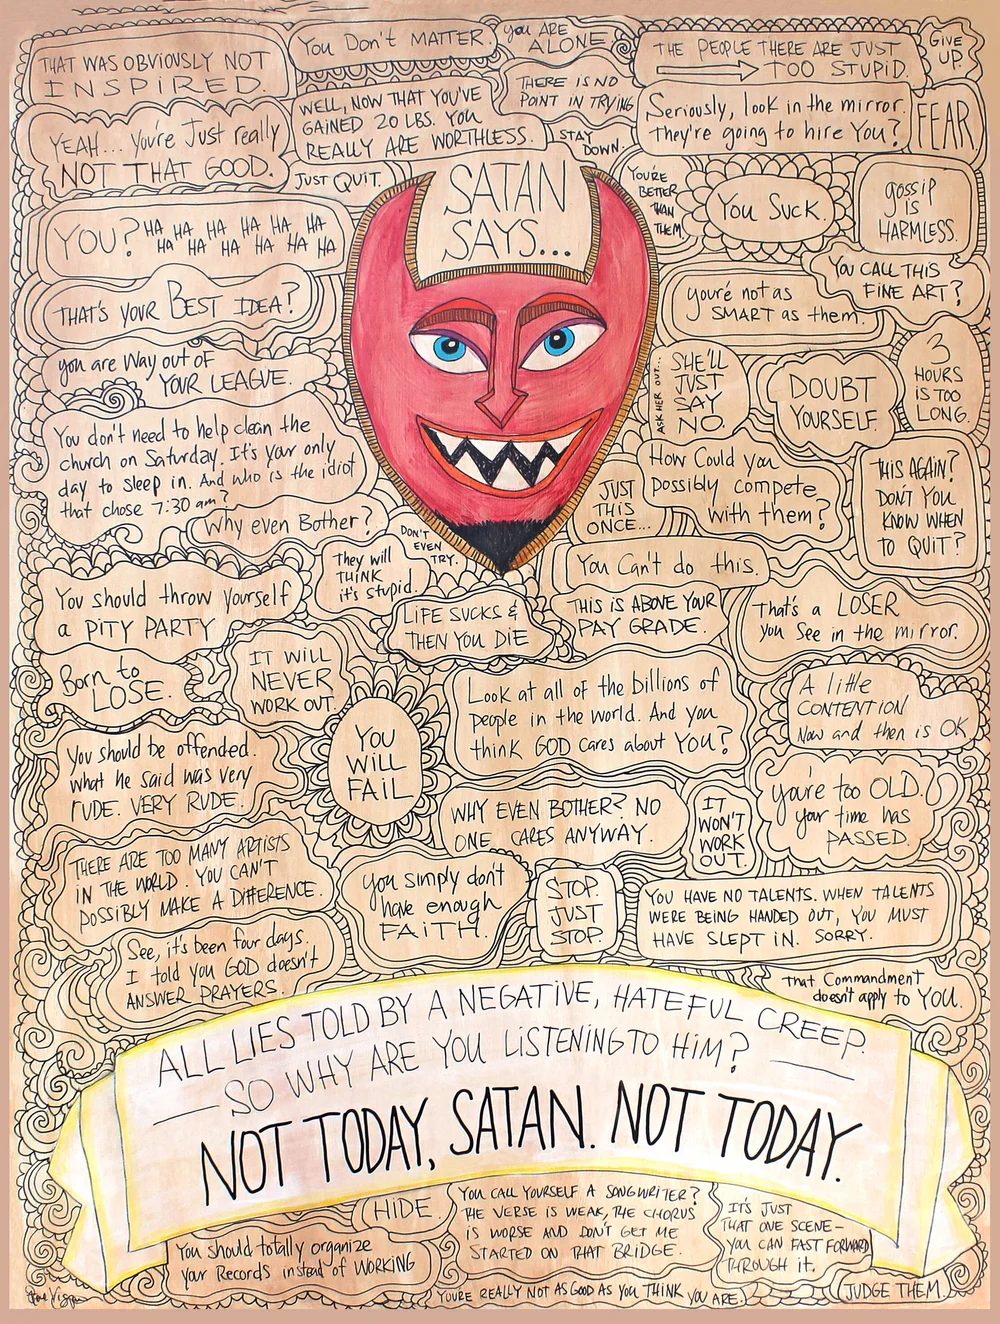 THAT WAS OBVIOUSLY NOT
INSPIRED.
You Don't MATTER
you ARE
ALONE
THE PEOPLE THERE ARE JUST
TOO STUPID.
GIVE
UP.
YEAH... you're Just really
NOT THAT GOOD.
WELL, NOW THAT YOU'VE
GAINED 20 LBS. YOU
REALLY ARE WORTHLESS.
THERE IS NO
POINT IN TRYING
STAY
DOWN.
Seriously, look in the mirror.
They're going to hire You?
FEAR.
JUST QUIT.
SATAN
SAYS...
YOU'RE
BETTER
THAN
THEM.
You Suck.
gossip
IS
HARMLESS.
YOU? HA HA HA HA HA HA
HA HA HA HA HA HA
YOU CALL THIS
FINE ART?
THAT'S YOUR BEST IDEA?
you're not as
SMART as them.
you are Way out of
YOUR LEAGUE.
ASK HER OUT...
SHE'LL
JUST
SAY
NO.
DOUBT
YOURSELF.
3
HOURS
IS TOO
LONG.
You don't need to help clean the
church on Saturday. It's your only
day to sleep in. And who is the idiot
that chose 7:30 am?
Why even Bother?
DON'T
EVEN
TRY.
JUST
THIS
ONCE...
How Could you
possibly compete
with them?
THIS AGAIN?
DON'T YOU
KNOW WHEN
TO QUIT?
They will
THINK
it's stupid.
You Can't do this.
You should throw yourself
a PITY PARTY
LIFE SUCKS &
THEN YOU DIE
THIS IS ABOVE YOUR
PAY GRADE.
That's a LOSER
you See in the mirror.
Born to
LOSE.
IT WILL
NEVER
WORK OUT.
YOU
WILL
FAIL
Look at all of the billions of
people in the world. And you
think GOD cares about YOU?
A little
CONTENTION
Now and then is OK
You should be offended.
what he said was very
RUDE. VERY RUDE.
WHY EVEN BOTHER? NO
ONE CARES ANYWAY.
IT
WON'T
WORK
OUT.
you're too OLD.
your time has
PASSED.
THERE ARE TOO MANY ARTISTS
IN THE WORLD. YOU CAN'T
POSSIBLY MAKE A DIFFERENCE.
you simply don't
have enough
FAITH.
STOP.
JUST
STOP.
YOU HAVE NO TALENTS. WHEN TALENTS
WERE BEING HANDED OUT, YOU MUST
HAVE SLEPT IN. SORRY.
See, it's been four days.
I told you GOD doesn't
ANSWER PRAYERS.
That Commandment
doesn't apply to YOU.
ALL LIES TOLD BY A NEGATIVE, HATEFUL CREEP.
SO WHY ARE YOU LISTENING TO HIM?
NOT TODAY, SATAN. NOT TODAY.
HIDE
You should totally organize
your Records instead of WORKING
YOU CALL YOURSELF A SONGWRITER?
THE VERSE IS WEAK, THE CHORUS
IS WORSE AND DON'T GET ME
STARTED ON THAT BRIDGE.
IT'S JUST
THAT ONE SCENE—
YOU CAN FAST FORWARD
THROUGH it.
YOU'RE REALLY NOT AS GOOD AS YOU THINK YOU ARE.
JUDGE THEM.